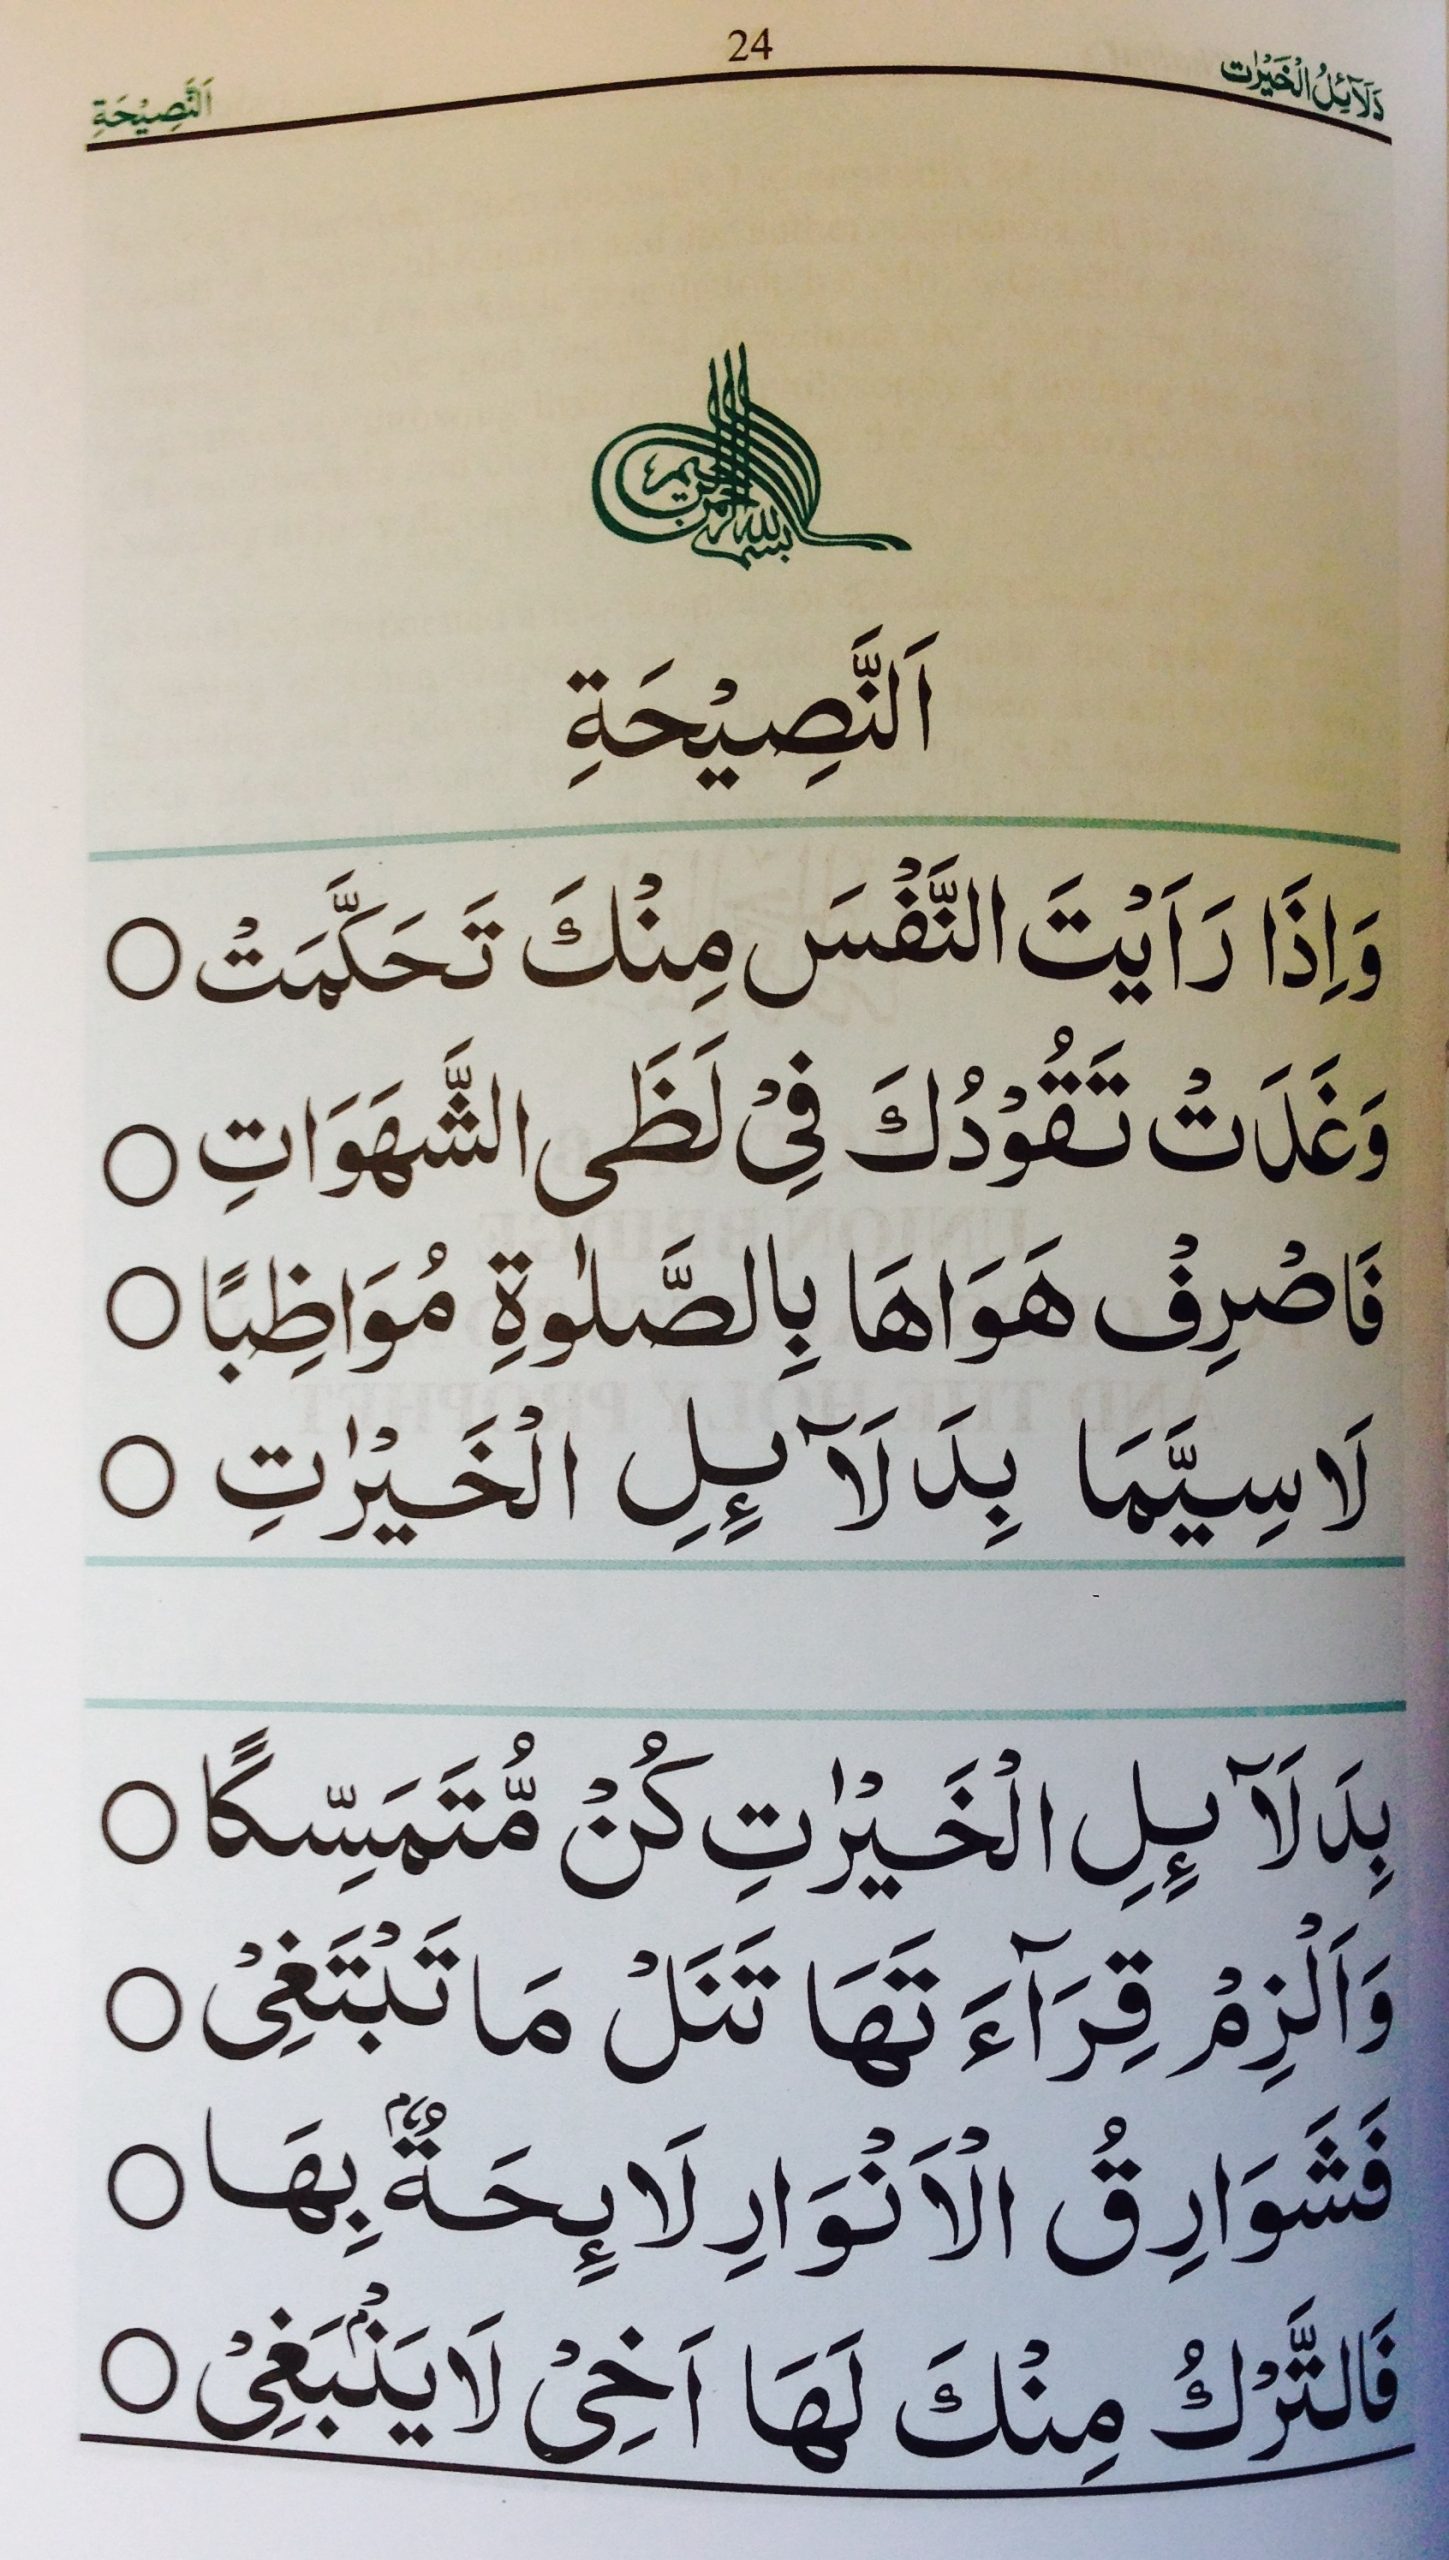 24
دَلَآئِلُ الْخَيْرٰات
اَلنَّصِيْحَةِ
بسم الله الرحمن الرحيم
اَلنَّصِيْحَةِ
وَاِذَا رَاَيْتَ النَّفْسَ مِنْكَ تَحَكَّمَتْ ○
وَغَدَتْ تَقُوْدُكَ فِيْ لَظَى الشَّهَوَاتِ ○
فَاصْرِفْ هَوَاهَا بِالصَّلٰوةِ مُوَاظِبًا ○
لَاسِيَّمَا بِدَلَآئِلِ الْخَيْرٰتِ ○
بِدَلَآئِلِ الْخَيْرٰتِ كُنْ مُّتَمَسِّكًا ○
وَاَلْزِمْ قِرَآءَتَهَا تَنَلْ مَا تَبْتَغِيْ ○
فَشَوَارِقُ الْاَنْوَارِ لَائِحَةٌۢ بِهَا ○
فَالتَّرْكُ مِنْكَ لَهَا اَخِيْ لَا يَنْۢبَغِيْ ○